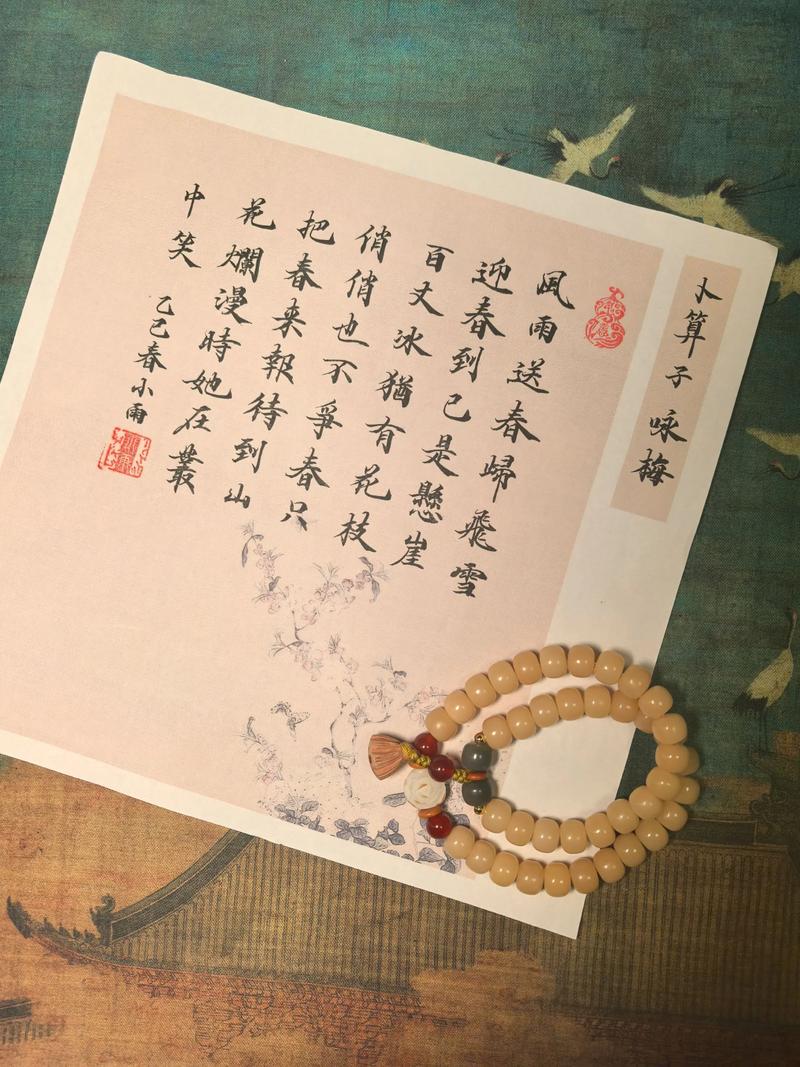 卜算子 咏梅
風雨送春歸飛雪
迎春到已是懸崖
百丈冰猶有花枝
俏俏也不爭春只
把春来報待到山
花爛漫時她在叢
中笑
乙巳春小雨